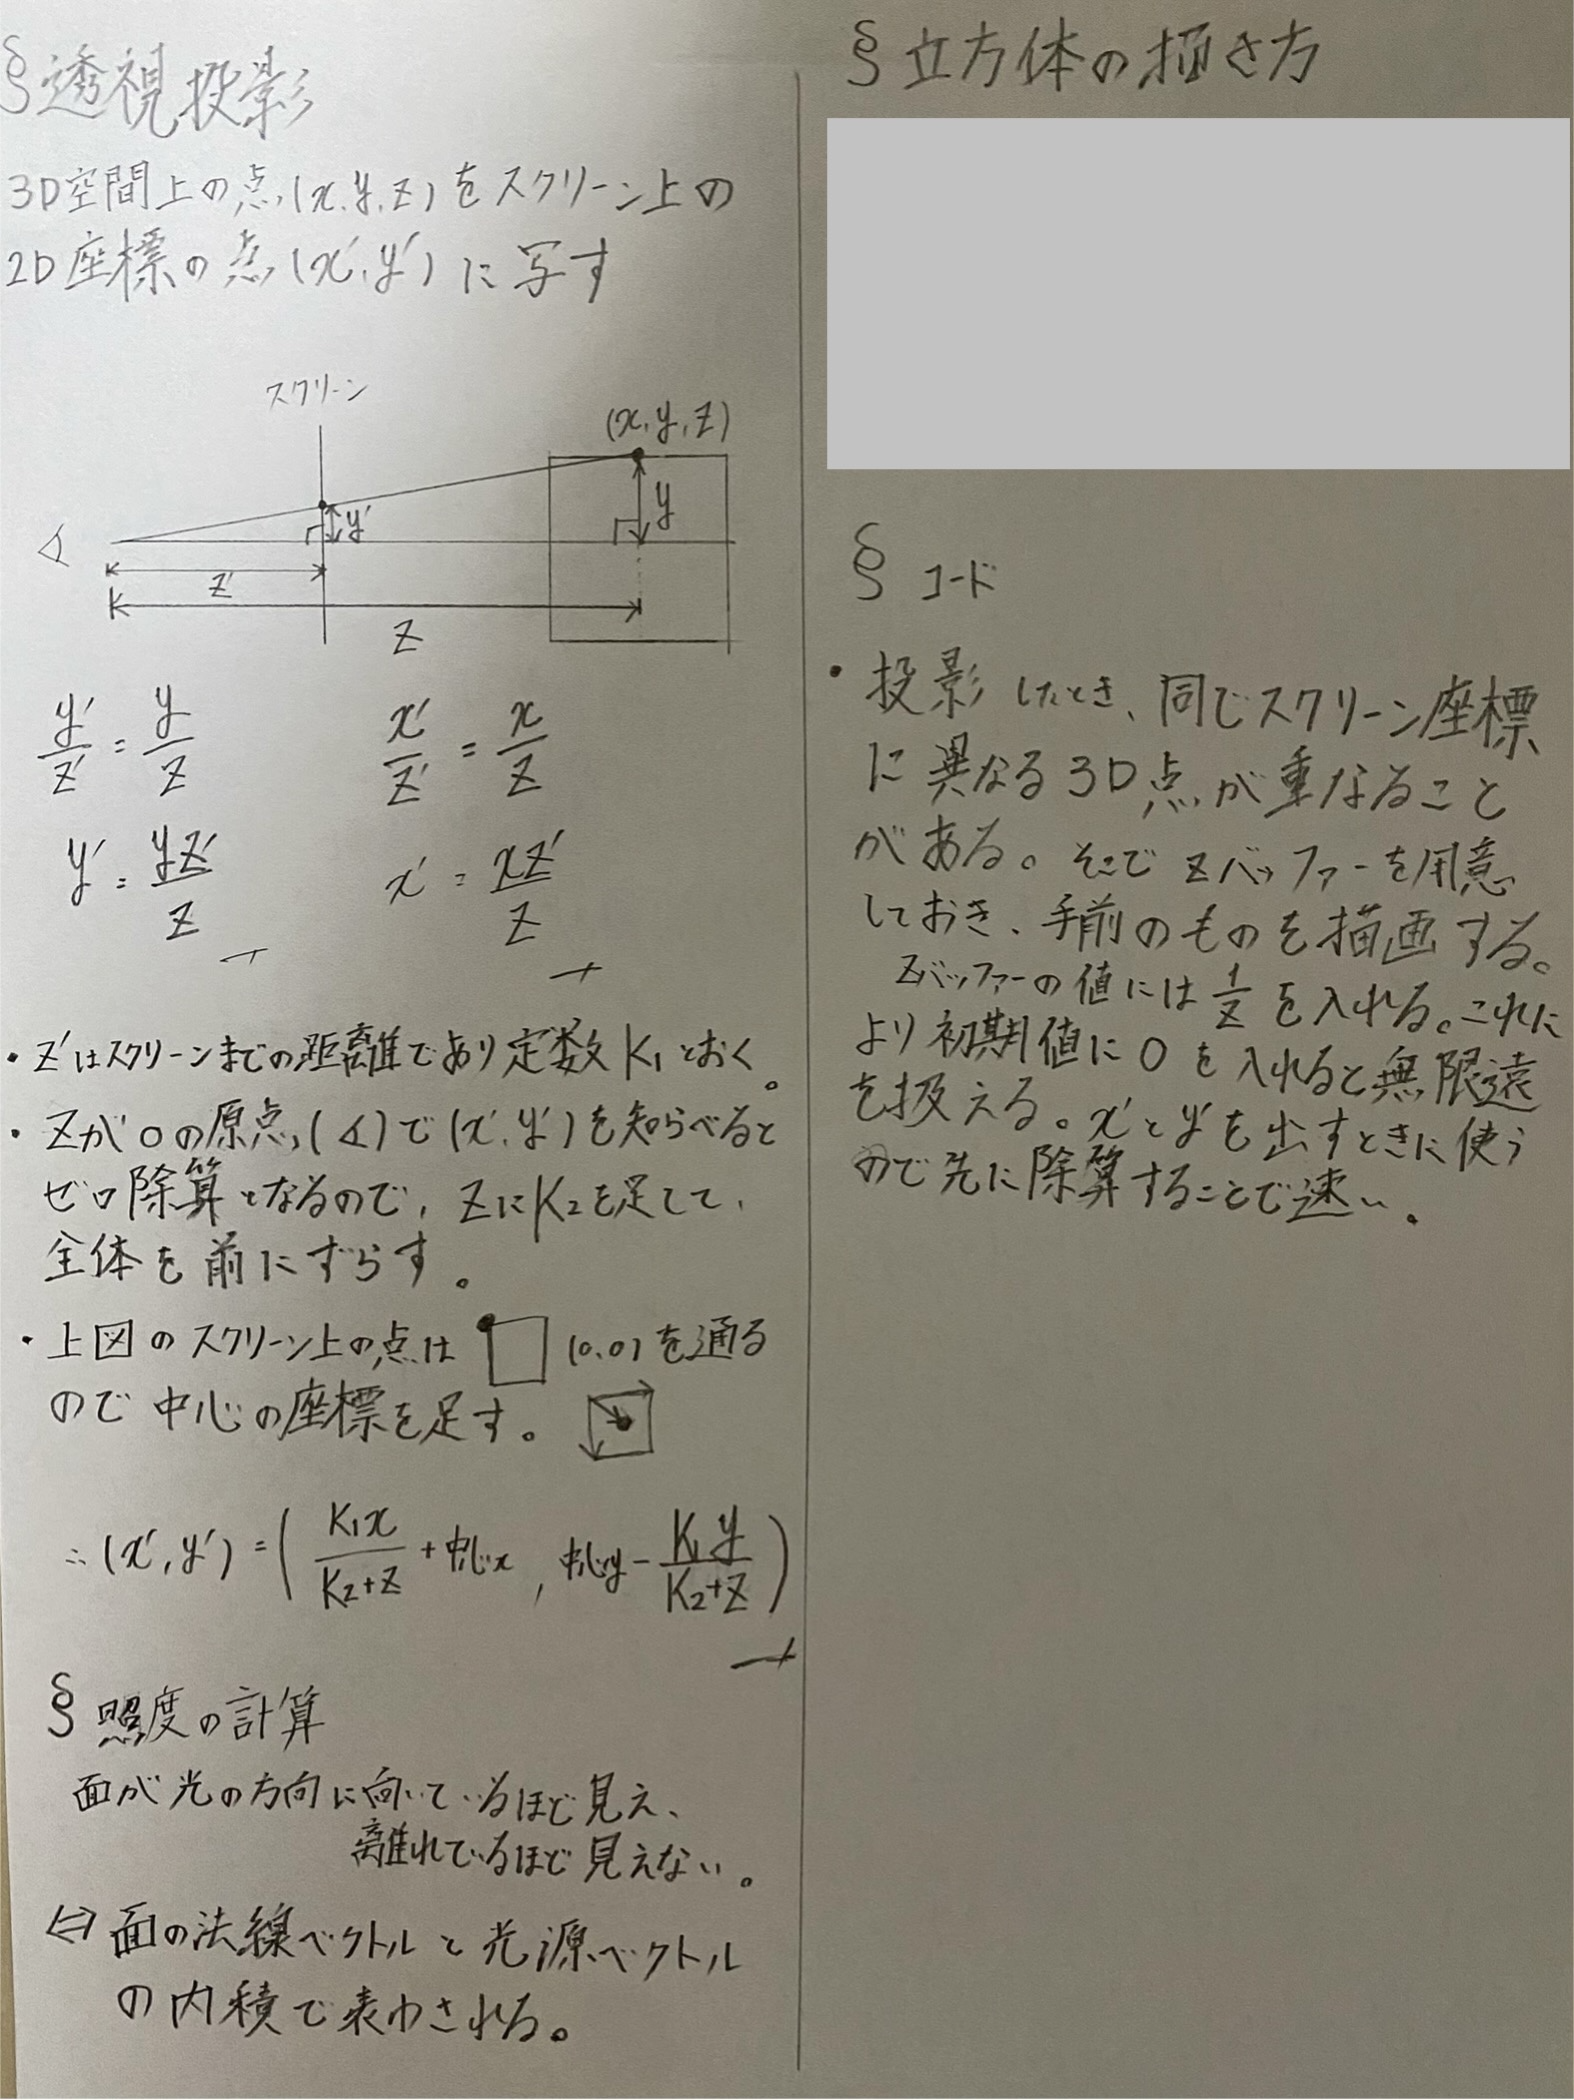 §透視投影
3D空間上の点(x,y,z)をスクリーン上の
2D座標の点(x',y')に写す
スクリーン
(x,y,z)
y'
y
z'
z
y'/z' = y/z
x'/z' = x/z
y' = yz'/z
x' = xz'/z
・z'はスクリーンまでの距離であり定数K₁とおく。
・zが0の原点(∡)で(x',y')を知らべると
ゼロ除算となるので,zにK₂を足して、
全体を前にずらす。
・上図のスクリーン上の点は (0,0)を通る
ので中心の座標を足す。
∴(x',y') = (K₁x/K₂+z + 中心x , 中心y - K₁y/K₂+z)
§照度の計算
面が光の方向に向いているほど見え、
離れているほど見えない。
⇔面の法線ベクトルと光源ベクトル
の内積で表わされる。
§立方体の描き方
§コード
・投影したとき、同じスクリーン座標
に異なる3D点が重なること
がある。そこでzバッファーを用意
しておき、手前のものを描画する。
zバッファーの値には1/zを入れる。これに
より初期値に0を入れると無限遠
を扱える。x'とy'を出すときに使う
ので先に除算することで速い。